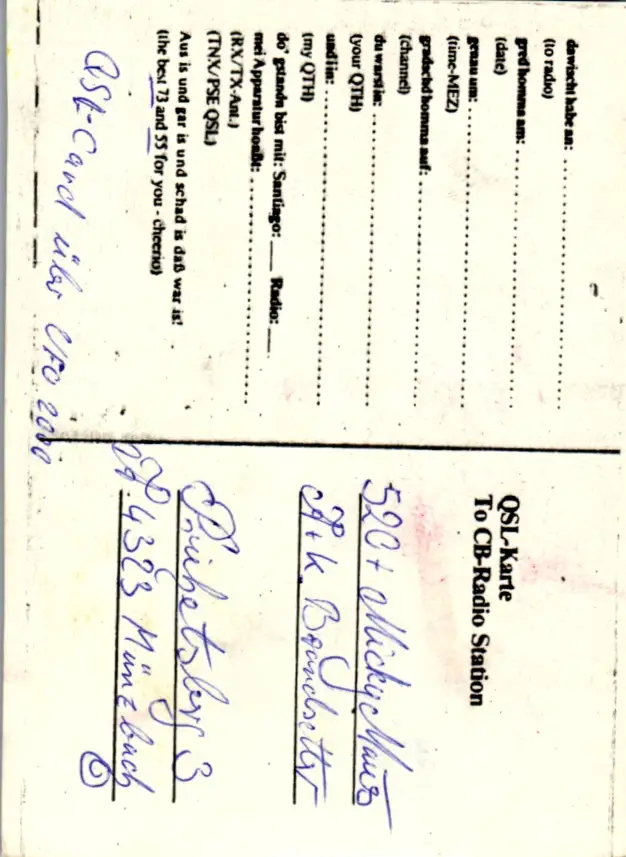 dawischt habe an: ....................
(to radio)
gred homma am: ....................
(date)
genau um: ....................
(time-MEZ)
gradschd homma auf: ....................
(channel)
du warst in: ....................
(your QTH)
und i in: ....................
(my QTH)
do' gstandn bist mit: Santiago: ___ Radio: ___
mei Apparatur hoaßt: ....................
(RX/TX-Ant.)
(TNX/PSE QSL)
Aus is und gar is und schad is daß war is!
(the best 73 and 55 for you - cheerio)
QSL-Card über UFO 2000
QSL-Karte
To CB-Radio Station
520 + Micky Maus
A + K. Brandstetter
Priehetsberg 3
A-4323 Münzbach